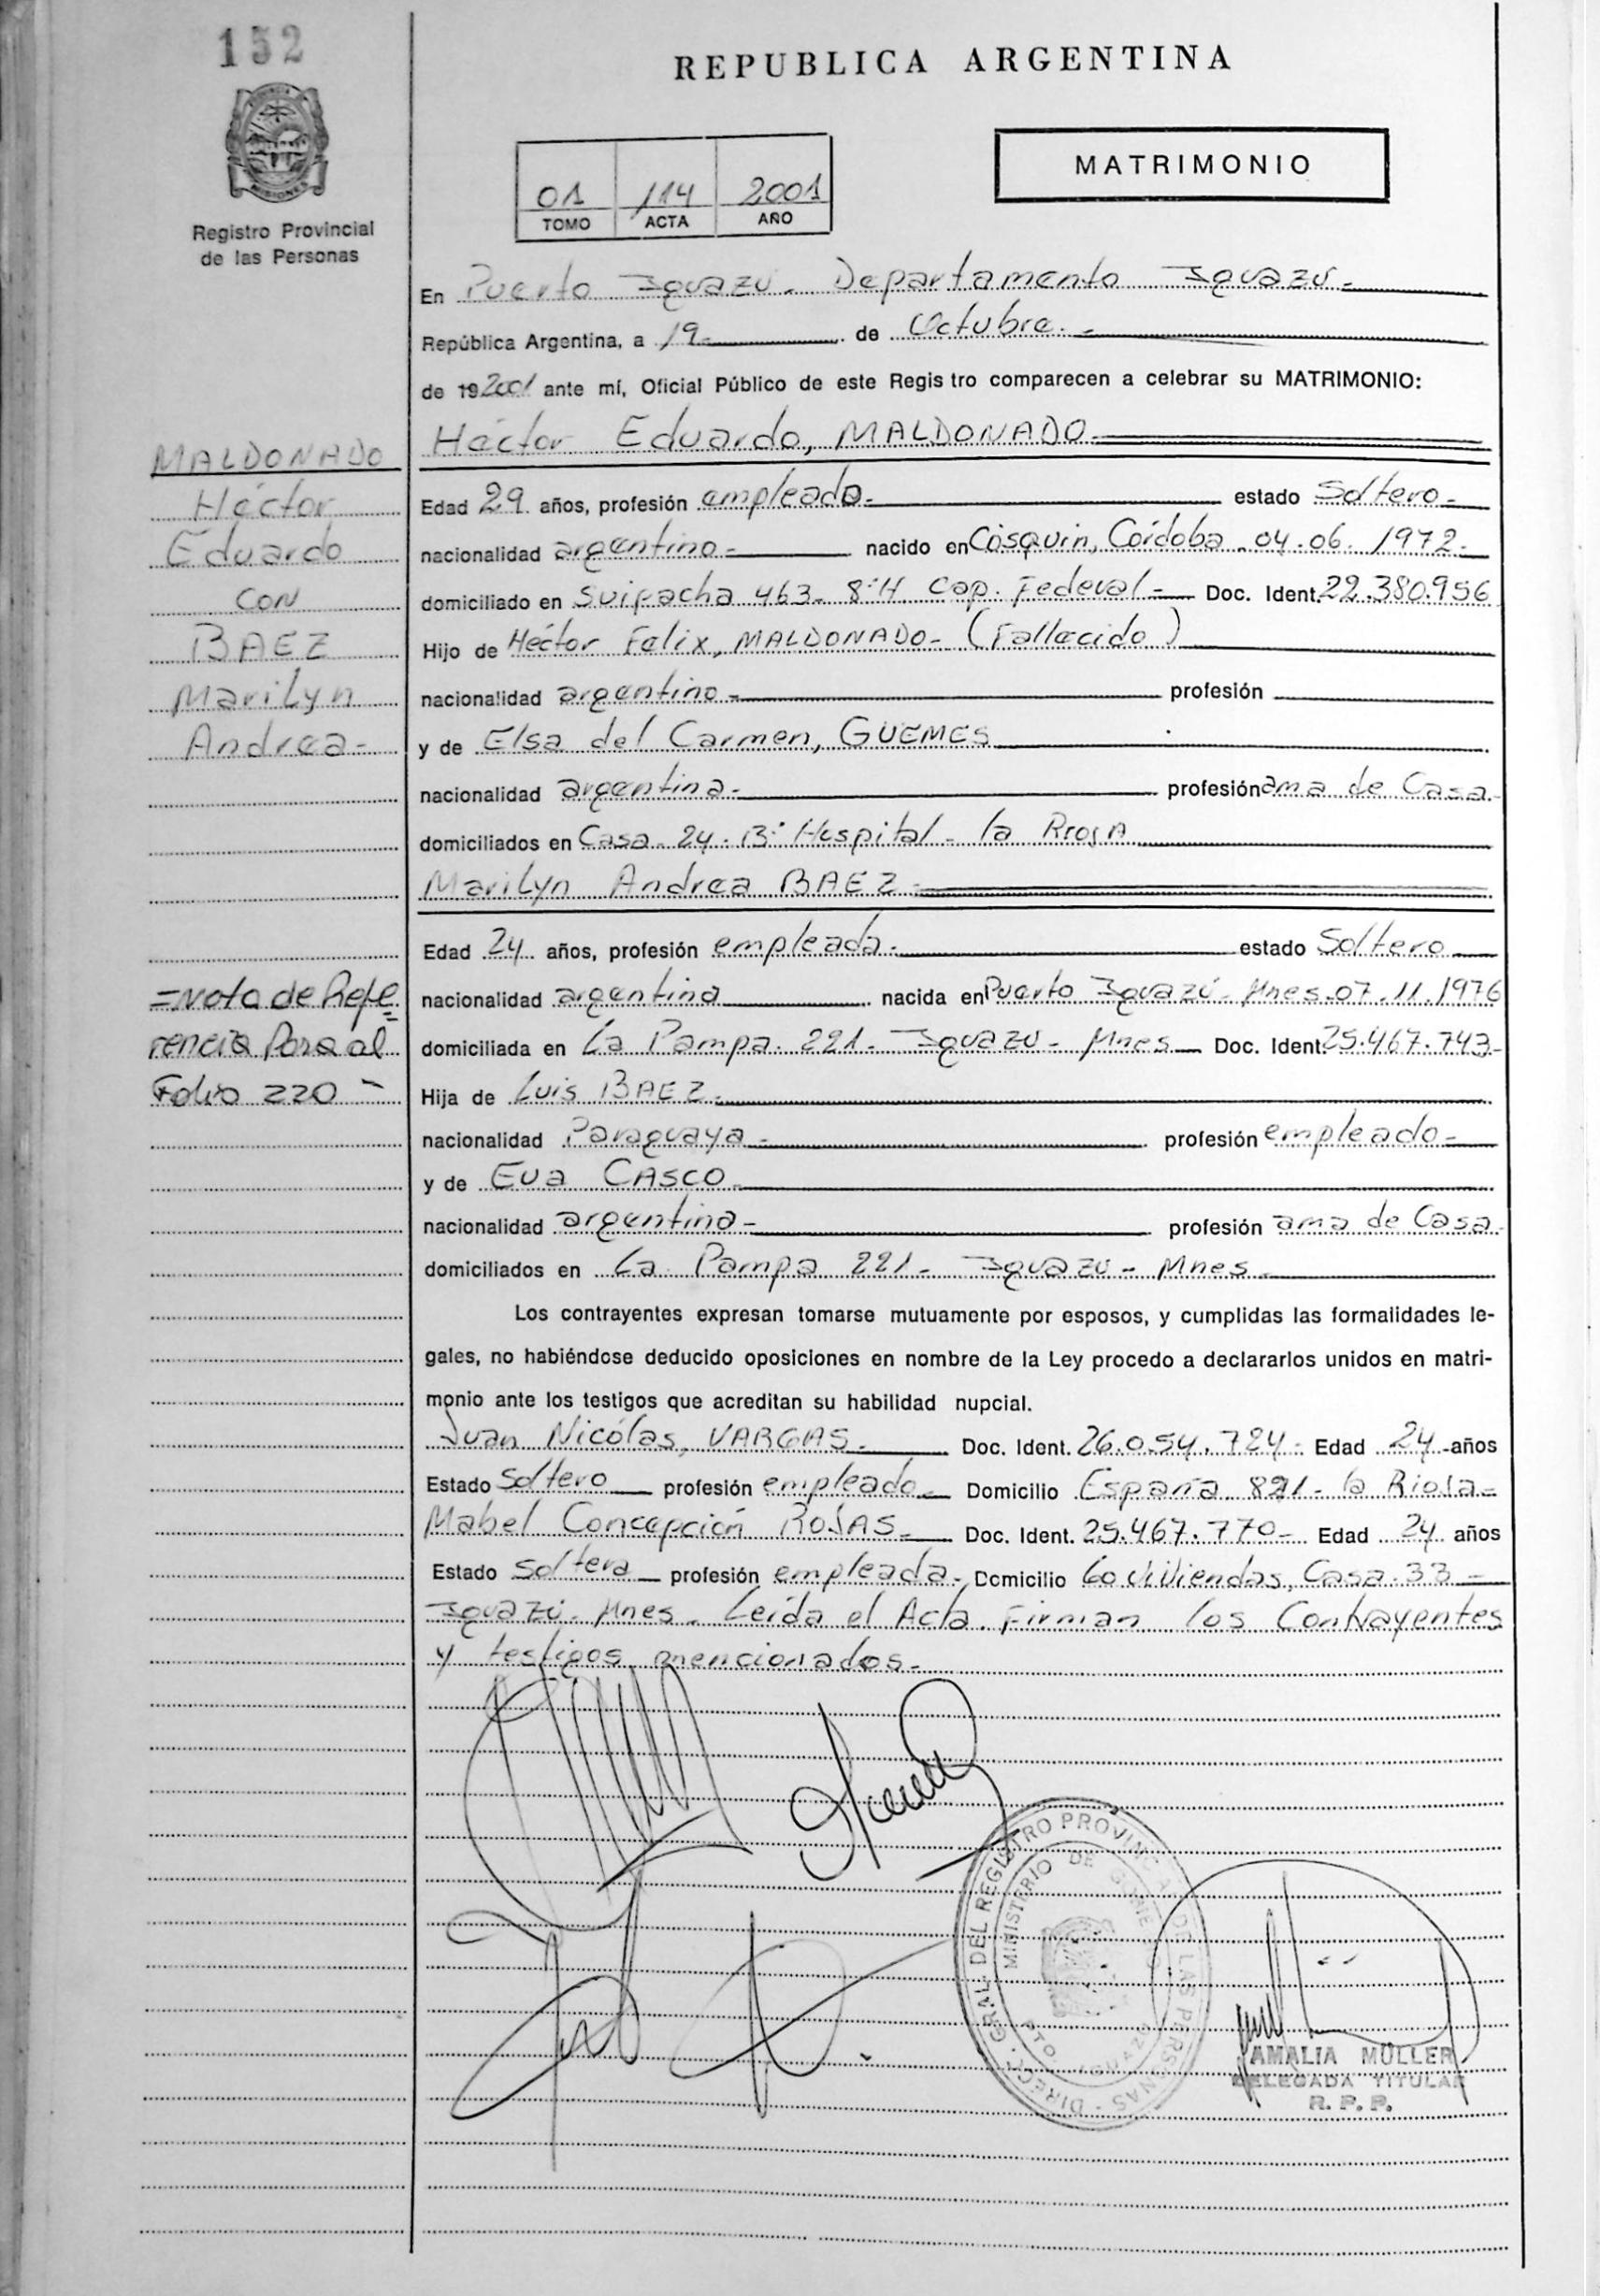 152
Registro Provincial
de las Personas
REPUBLICA ARGENTINA
MATRIMONIO
01 114 2001
TOMO ACTA AÑO
En Puerto Iguazú - Departamento Iguazú -
República Argentina, a 19 de Octubre. -
de 192001 ante mí, Oficial Público de este Registro comparecen a celebrar su MATRIMONIO:
Héctor Eduardo, MALDONADO
MALDONADO
Héctor
Eduardo
CON
BAEZ
Marilyn
Andrea-
Edad 29 años, profesión empleado- estado Soltero-
nacionalidad argentino- nacido en Cosquin, Córdoba - 04.06.1972-
domiciliado en Suipacha 463 - 8ºH Cap. Federal - Doc. Ident. 22.380.956
Hijo de Héctor Felix, MALDONADO - (Fallecido)
nacionalidad argentino - profesión
y de Elsa del Carmen, GUEMES
nacionalidad argentina - profesión ama de Casa-
domiciliados en Casa - 24 - Bº Hospital - la Rioja
Marilyn Andrea BAEZ -
Edad 24 años, profesión empleada - estado Soltero
nacionalidad argentina nacida en Puerto Iguazú - Mnes - 07.11.1976
domiciliada en La Pampa 221 - Iguazú - Mnes - Doc. Ident. 25.467.743-
Hija de Luis BAEZ -
nacionalidad Paraguaya - profesión empleado -
y de Eva CASCO -
nacionalidad argentina - profesión ama de Casa-
domiciliados en La Pampa 221 - Iguazú - Mnes -
=Nota de Refe=
rencia Pasa al
Folio 220 -
Los contrayentes expresan tomarse mutuamente por esposos, y cumplidas las formalidades le-
gales, no habiéndose deducido oposiciones en nombre de la Ley procedo a declararlos unidos en matri-
monio ante los testigos que acreditan su habilidad nupcial.
Juan Nicólas, VARGAS - Doc. Ident. 26.054.724 - Edad 24 años
Estado Soltero profesión empleado - Domicilio España 821 - la Rioja -
Mabel Concepción ROJAS - Doc. Ident. 25.467.770 - Edad 24 años
Estado Soltera profesión empleada - Domicilio 60 Viviendas, Casa 33 -
Iguazú - Mnes - Leída el Acta Firman los Contrayentes
y testigos mencionados -
DIRECT. GRAL. DEL REGISTRO PROVINCIAL DE LAS PERSONAS
MINISTERIO DE GOBIERNO
PTO. IGUAZU
AMALIA MULLER
DELEGADA TITULAR
R. P. P.